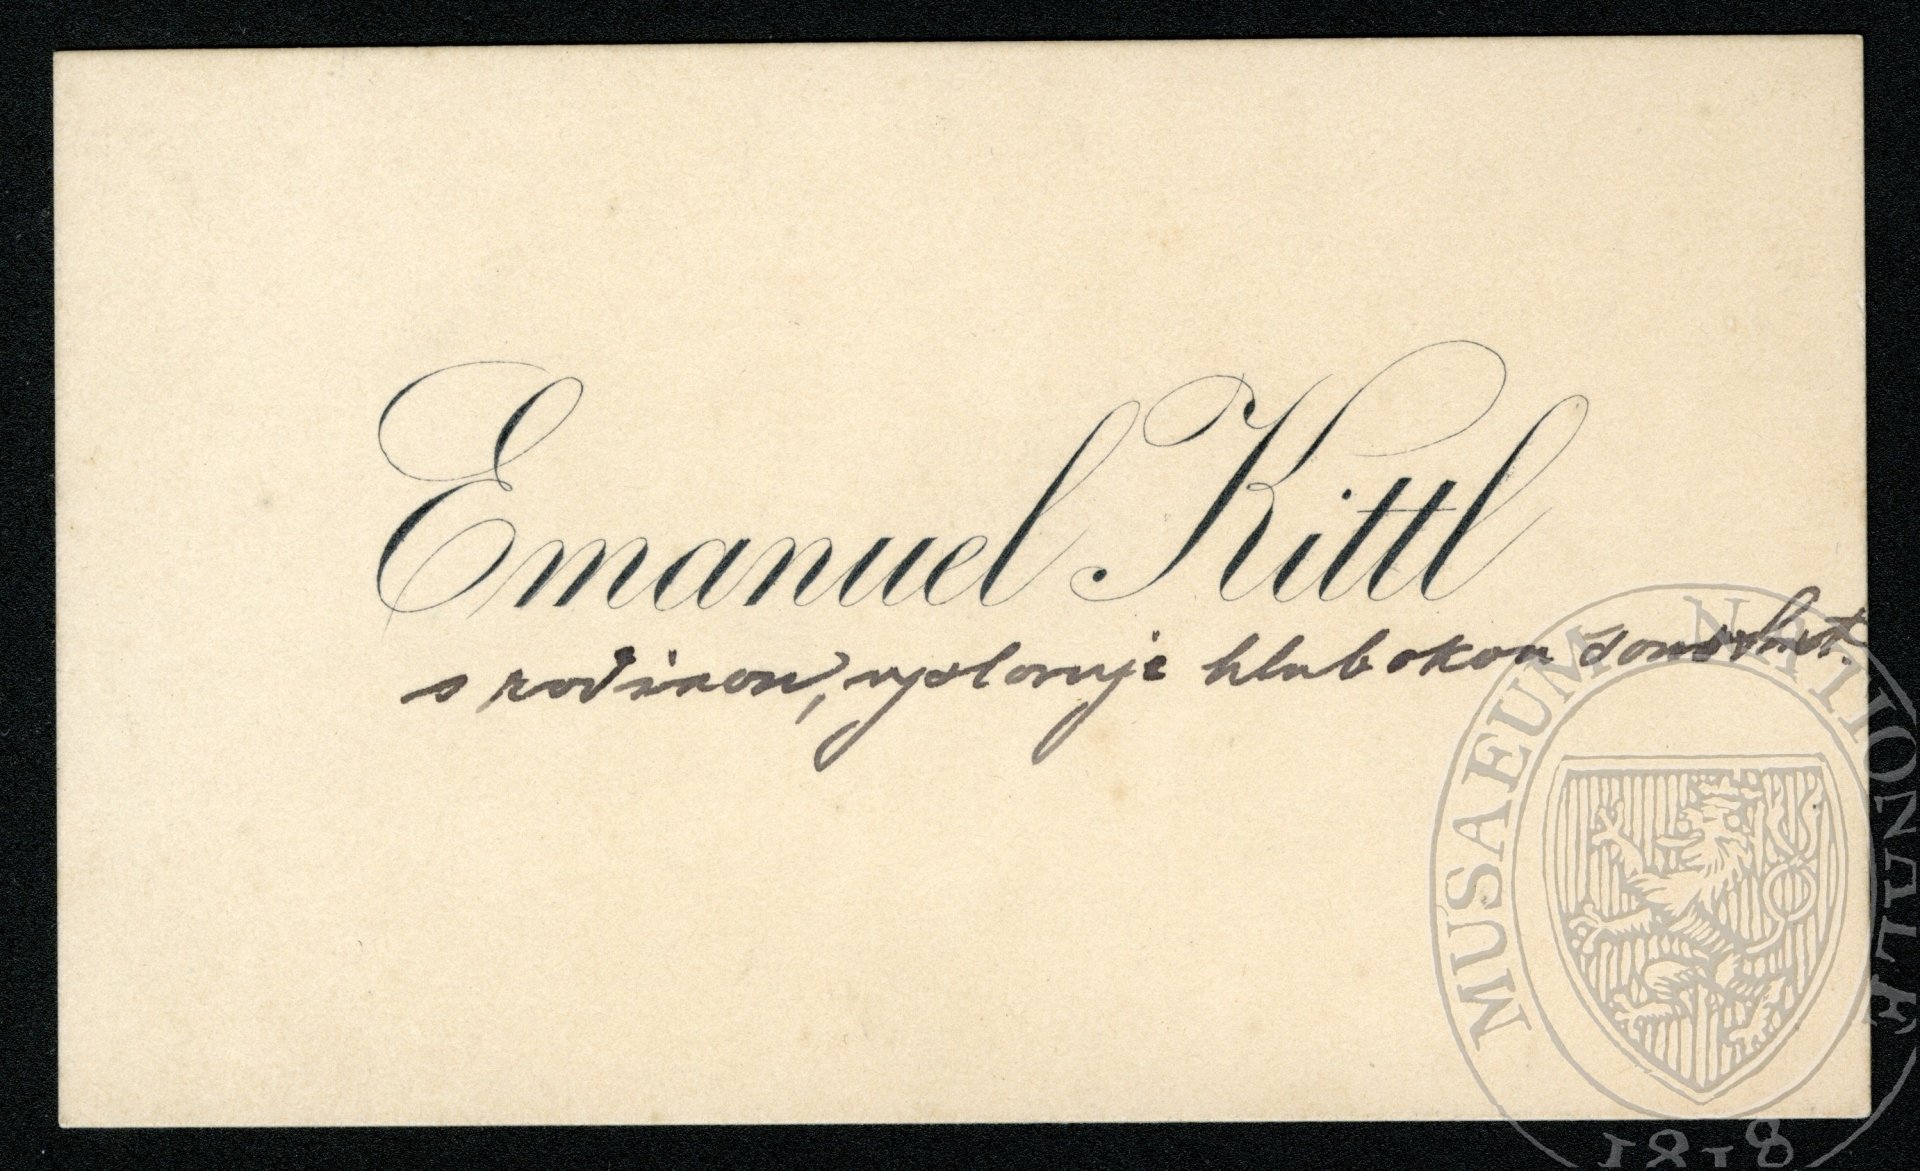 Emanuel Kittl
s rodinou, vyslovuje hlubokou soustrast.
MUSAEUM NATIONALE
1818